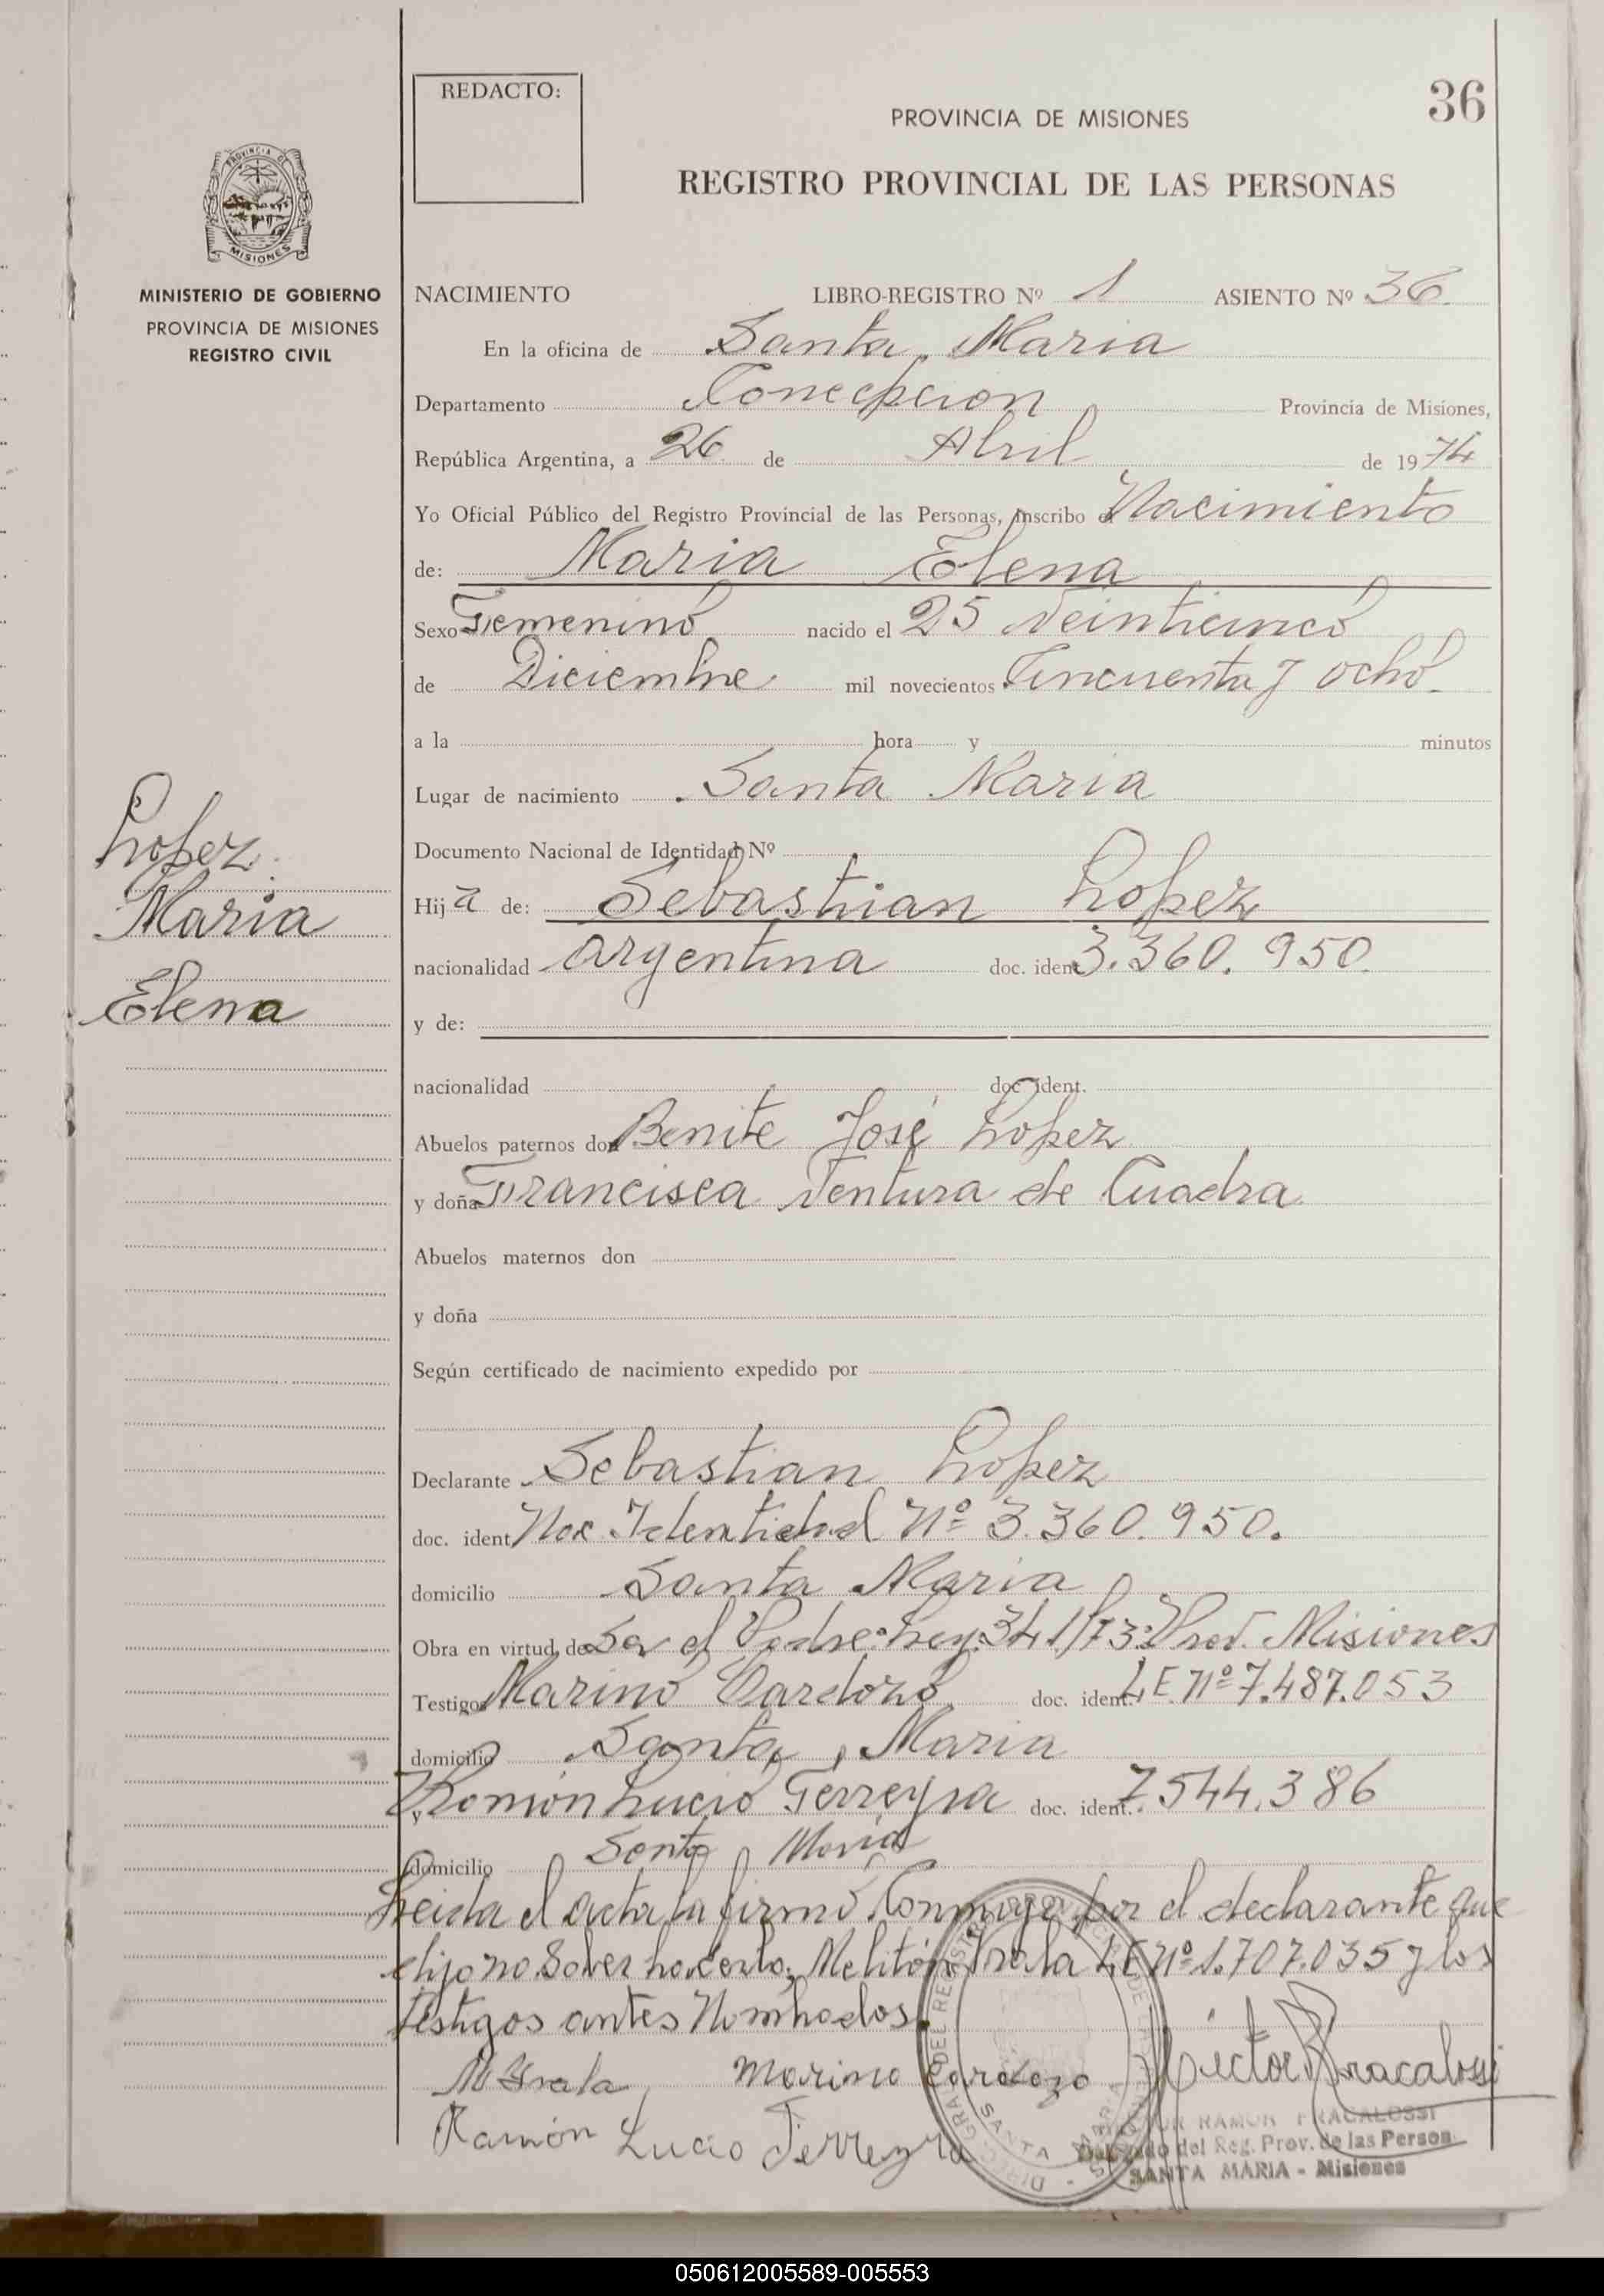 REDACTO:
36
PROVINCIA DE MISIONES
REGISTRO PROVINCIAL DE LAS PERSONAS
PROVINCIA DE
MISIONES
MINISTERIO DE GOBIERNO
PROVINCIA DE MISIONES
REGISTRO CIVIL
NACIMIENTO LIBRO-REGISTRO Nº 1 ASIENTO Nº 36
En la oficina de Santa Maria
Departamento Concepcion Provincia de Misiones,
República Argentina, a 26 de Abril de 1974
Yo Oficial Público del Registro Provincial de las Personas, inscribo el Nacimiento
de: Maria Elena
Sexo Femenino nacido el 25 Veinticinco
de Diciembre mil novecientos Cincuenta y ocho.
a la hora y minutos
Lugar de nacimiento Santa Maria
Lopez
Maria
Elena
Documento Nacional de Identidad Nº
Hija de: Sebastian Lopez
nacionalidad argentina doc. ident. 3.360.950.
y de:
nacionalidad doc. ident.
Abuelos paternos don Benite José Lopez
y doña Francisca Ventura de Cuadra
Abuelos maternos don
y doña
Según certificado de nacimiento expedido por
Declarante Sebastian Lopez
doc. ident. Identidad Nº 3.360.950.
domicilio Santa Maria
Obra en virtud de Ser el Padre: Ley: 341/73: Prov. Misiones
Testigos Marino Cardozo doc. ident. L.E. Nº 7.487.053
domicilio Santa Maria
y Ramón Lucio Ferreyra doc. ident. 7.544.386
domicilio Santa Maria
Leida el acta la firmó Conmigo por el declarante que
dijo no Saber hacerlo, Melitón Irala L.E Nº 1.707.035 y los
testigos antes Nombrados.
M Irala Marino Cardozo Hector R Fracalossi
Ramón Lucio Ferreyra
RAMON FRACALOSSI
Delegado del Reg. Prov. de las Person.
SANTA MARIA - Misiones
SANTA MARIA
050612005589-005553